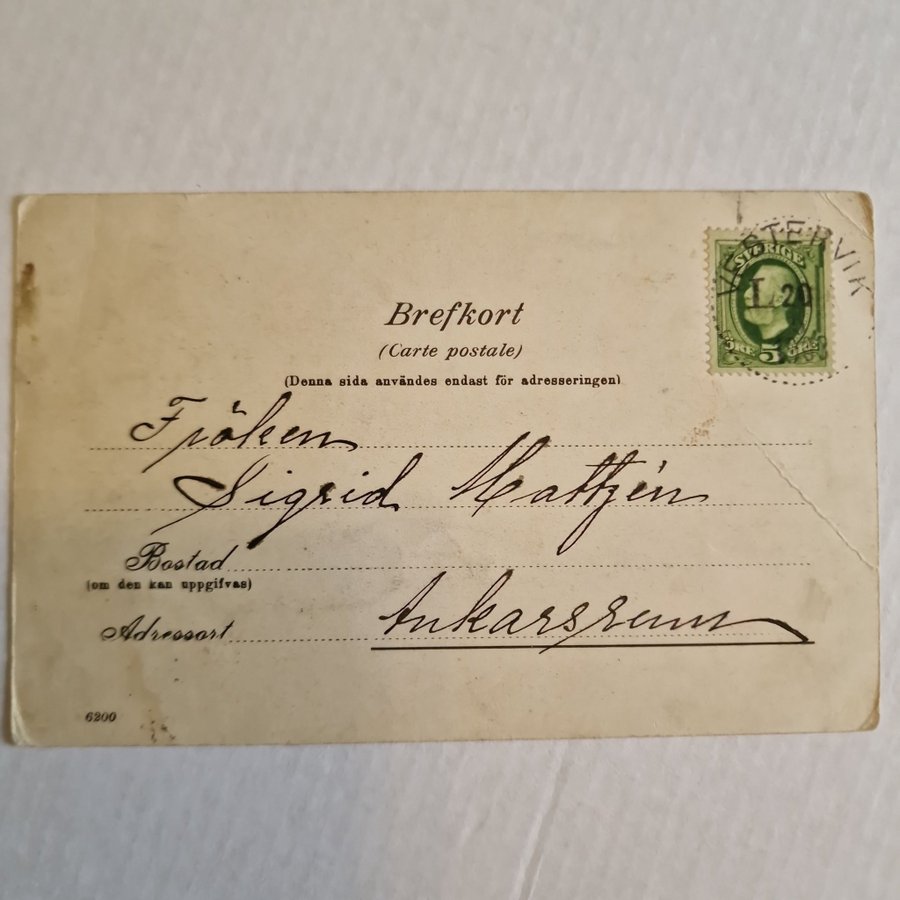 VESTERVIK
SVERIGE
L 20
ÖRE 5 ÖRE
Brefkort
(Carte postale)
(Denna sida användes endast för adresseringen)
Fröken
Sigrid Mattzén
Bostad
(om den kan uppgifvas)
Adressort Ankarsrum
6200